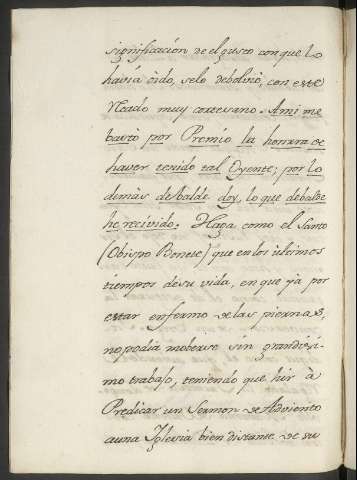 significación de el gusto con que lo
havia oido, selo debolvió, con este
Recado muy cortesano. Ami me
bastó por Premio la honrra de
haver tenido tal Oyente; por lo
demàs de Balde doy, lo que de balde
he recivido. Haga como el Santo
(Obispo Bonese) que en los ùltimos
tiempos de su vida, en que yà por
estar enfermo de las piernas,
no podia moberse sin grandissi-
mo trabajo, teniendo que hir à
Predicar un Sermon de Adviento
auna Iglesia bien distante de su